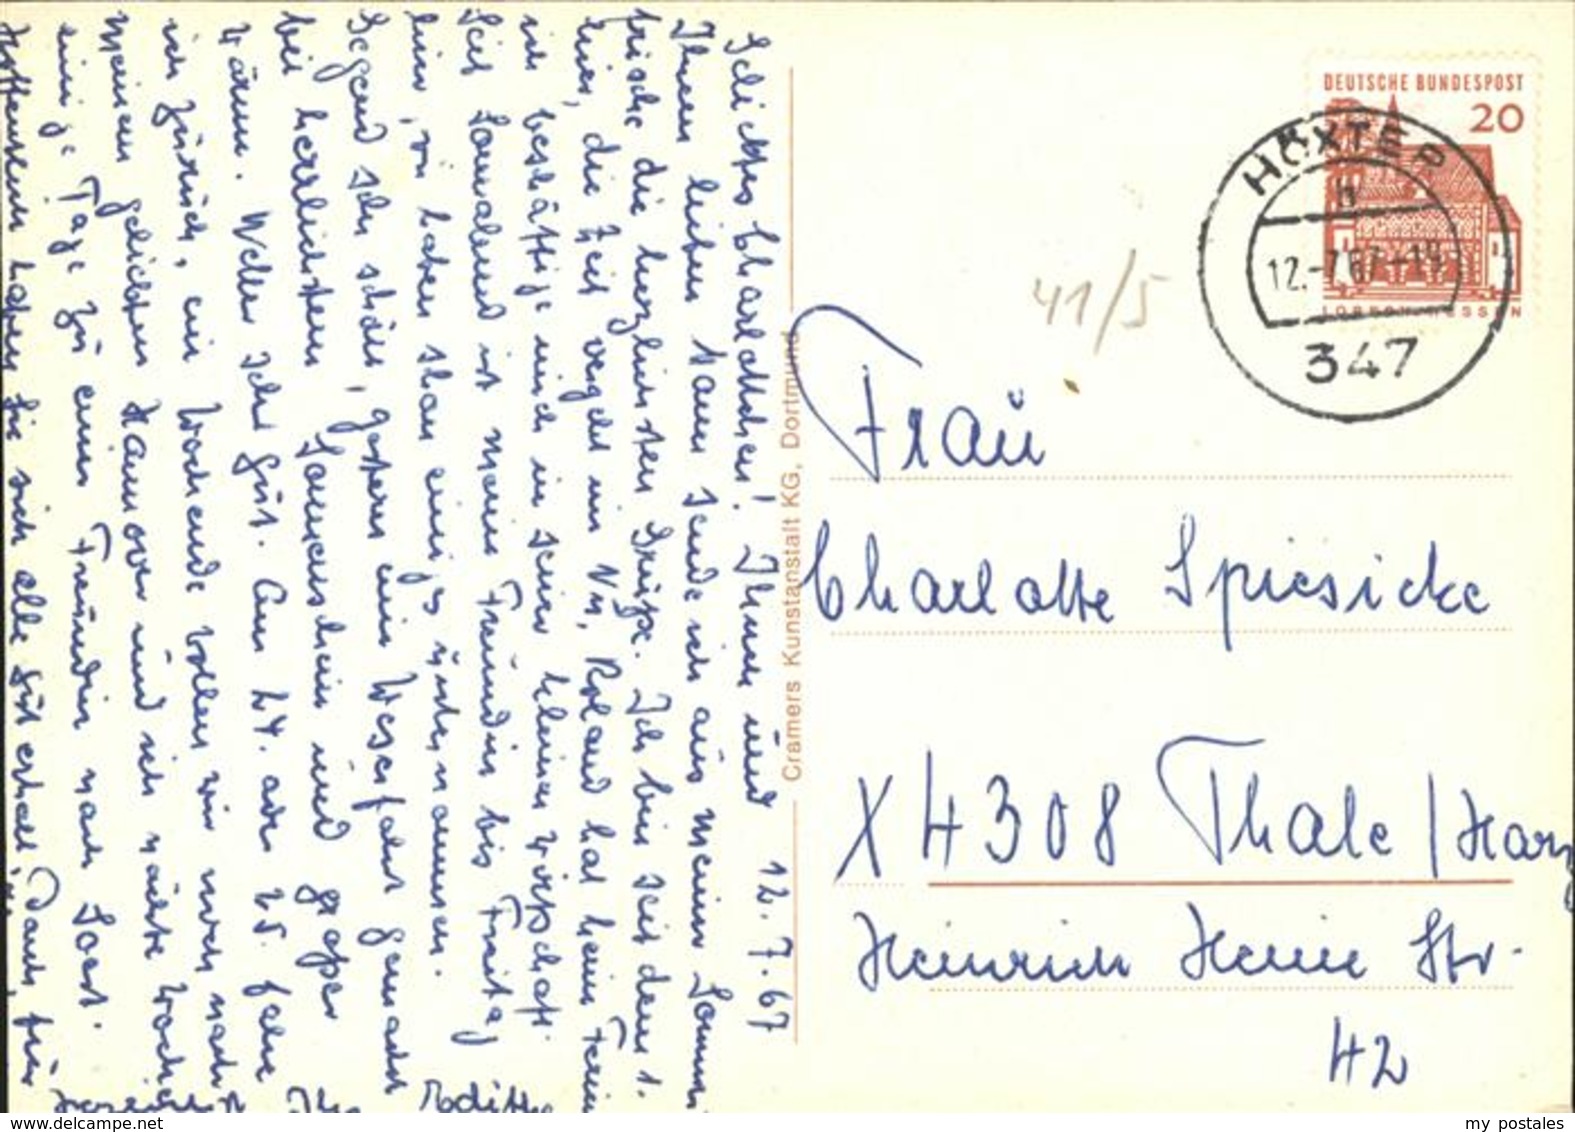 12.7.67
Geliebtes Charlottchen! Ihnen und
Ihrem lieben Mann sende ich aus meiner Sommer
frische die herzlichsten Grüße. Ich bin seit dem 1.
hier, die Zeit vergeht im Nu, Roland hat keine Ferien
ich beschäftige mich in seiner kleinen Wirtschaft.
Seit Sonnabend ist meine Freundin bis Freitag
hier, wir haben schon einiges unternommen.
Gegend sehr schön, gestern eine Weserfahrt gemacht
bei herrlichstem Sonnenschein und großer
Wärme. Wetter sehr gut. Am 24. oder 25. fahre
ich zurück, ein Wochenende wollen wir noch nach
meinem geliebten Hannover und ich nächste Woche
einige Tage zu einer Freundin nach Soest.
Hoffentlich haben Sie sich alle gut erholt. Dank für
Edith
Cramers Kunstanstalt KG, Dortmund
DEUTSCHE BUNDESPOST
20
HÖXTER
h
12.-7.67-19
347
41/5
Frau
Charlotte Spiesicke
X 4308 Thale / Harz
Heinrich Heine Str.
42
www.delcampe.net
my postales